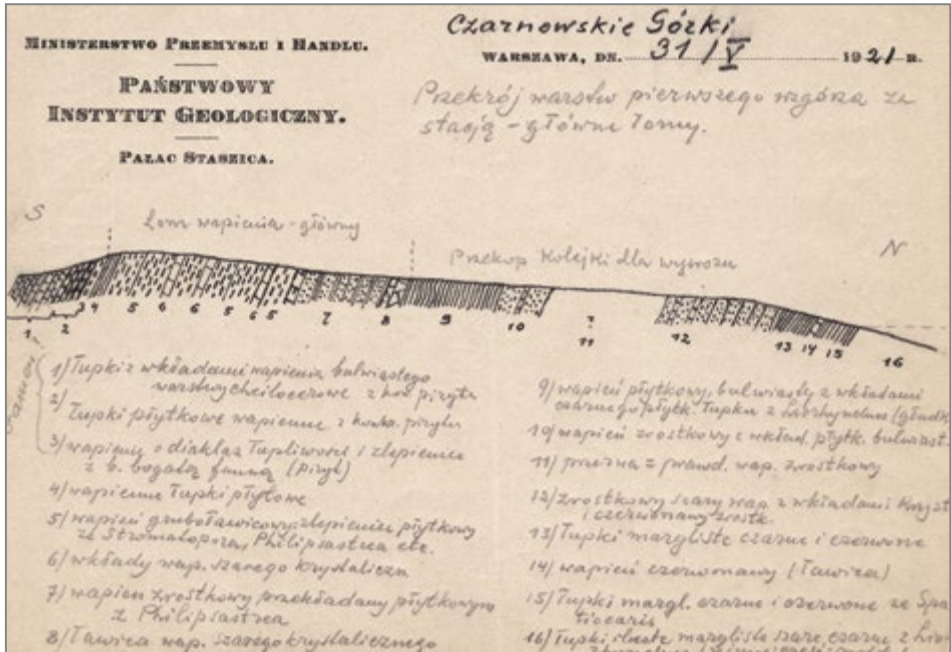 MINISTERSTWO PRZEMYSŁU I HANDLU.
PAŃSTWOWY
INSTYTUT GEOLOGICZNY.
PAŁAC STASZICA.
Czarnowskie Górki
WARSZAWA, DN. 31/V 1921 R.
Przekrój warstw pierwszego wzgórza za
stacją - główne łomy.
S
Łom wapienia - główny
Przekop Kolejki dla wywozu
N
1 2 3 4 5 6 6 5 6 5 7 8 9 10 ? 11 12 13 14 15 16
1) Łupki z wkładami wapienia bulwiastego
warstwy cheilocerowe z piryt
2) Łupki płytkowe wapienne z piryt
3) wapienne o Łupliwości i zlepieniec
z b. bogatą fauną (piryt)
4) wapienne Łupki płytowe
5) wapień gruboławicowy zlepieniec płytkowy
ze Stromatopora, Philipsastrea etc.
6) wkłady wap. szarego krystaliczn
7) wapien zrostkowy przekładany płytkowym
z Philipsastrea
8) Ławica wap. szarego krystalicznego
9) wapień płytkowy, bulwiasty z wkładami
czarnego płytk. Łupku z
10) wapień zrostkowy z wkład. płytk. bulwiast.
11) przerwa = prawd. wap. zrostkowy
12) zrostkowy szary wap. z wkładami Kryst
i czerwonawy zrostk.
13) Łupki margliste czarne i czerwone
14) wapień czerwonawy (Ławica)
15) Łupki margl. czarne i czerwone ze Spa
tiocaris
16) Łupki ilaste margliste szare, czarne z